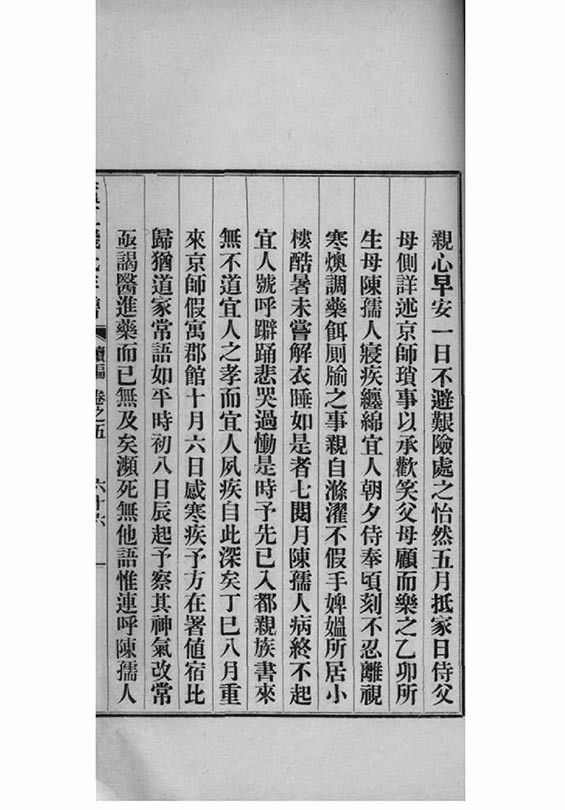 親心早安一日不避艱險處之怡然五月抵家日侍父
母側詳述京師瑣事以承歡笑父母顧而樂之乙卯所
生母陳孺人寢疾纏綿宜人朝夕侍奉頃刻不忍離視
寒燠調藥餌厠牏之事親自滌濯不假手婢媼所居小
樓酷暑未嘗解衣睡如是者七閱月陳孺人病終不起
宜人號呼躃踊悲哭過慟是時予先已入都親族書來
無不道宜人之孝而宜人夙疾自此深矣丁巳八月重
來京師假寓郡館十月六日感寒疾予方在署値宿比
歸猶道家常語如平時初八日辰起予察其神氣改常
亟謁醫進藥而已無及矣瀕死無他語惟連呼陳孺人
續編 卷之五 六十六